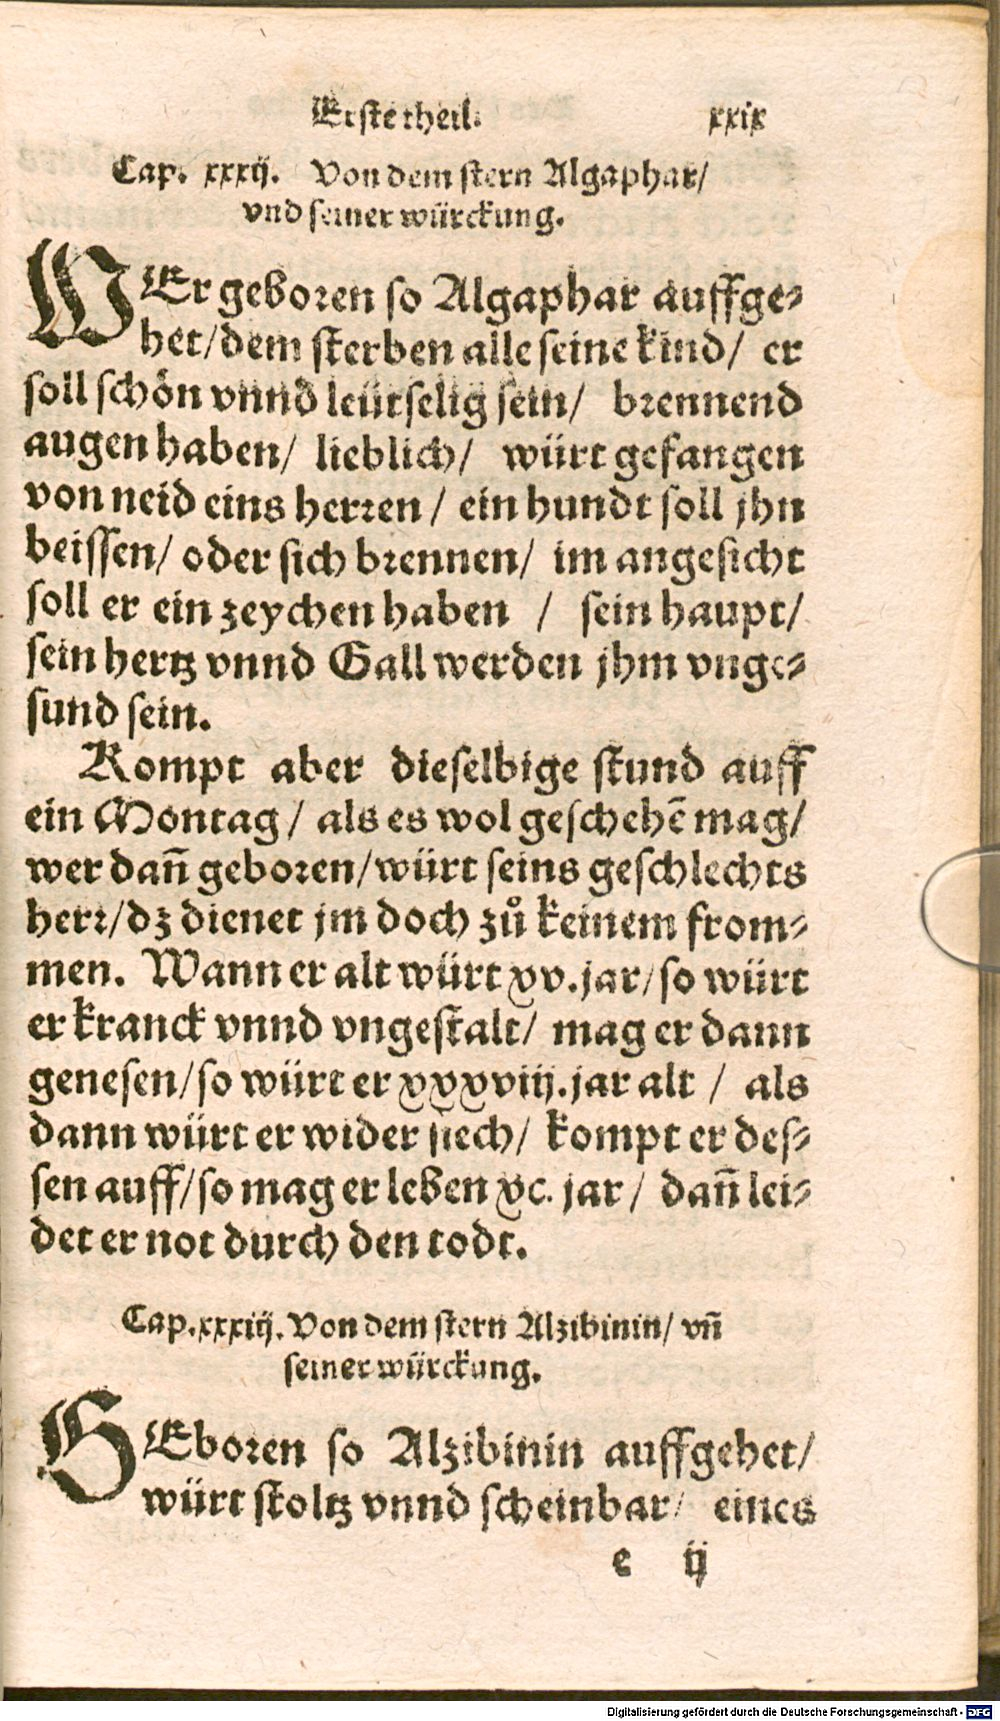 Erste theil. xxix
Cap. xxxij. Von dem stern Algaphar/
vnd seiner würckung.
WEr geboren so Algaphar auffge-
het/dem sterben alle seine kind/ er
soll schön vnnd leütselig sein/ brennend
augen haben/ lieblich/ würt gefangen
von neid eins herren/ ein hundt soll jhn
beissen/ oder sich brennen/ im angesicht
soll er ein zeychen haben / sein haupt/
sein hertz vnnd Gall werden jhm vnge-
sund sein.
Kompt aber dieselbige stund auff
ein Montag/ als es wol geschehē mag/
wer dañ geboren/würt seins geschlechts
herr/dz dienet jm doch zů keinem from-
men. Wann er alt würt xv. jar/so würt
er kranck vnnd vngestalt/ mag er dann
genesen/so würt er xxxviij. jar alt / als
dann würt er wider siech/ kompt er des-
sen auff/so mag er leben xc. jar/ dañ lei-
det er not durch den todt.
Cap. xxxiij. Von dem stern Alzibinin/ vñ
seiner würckung.
GEboren so Alzibinin auffgehet/
würt stoltz vnnd scheinbar/ eines
e ij
Digitalisierung gefördert durch die Deutsche Forschungsgemeinschaft - DFG